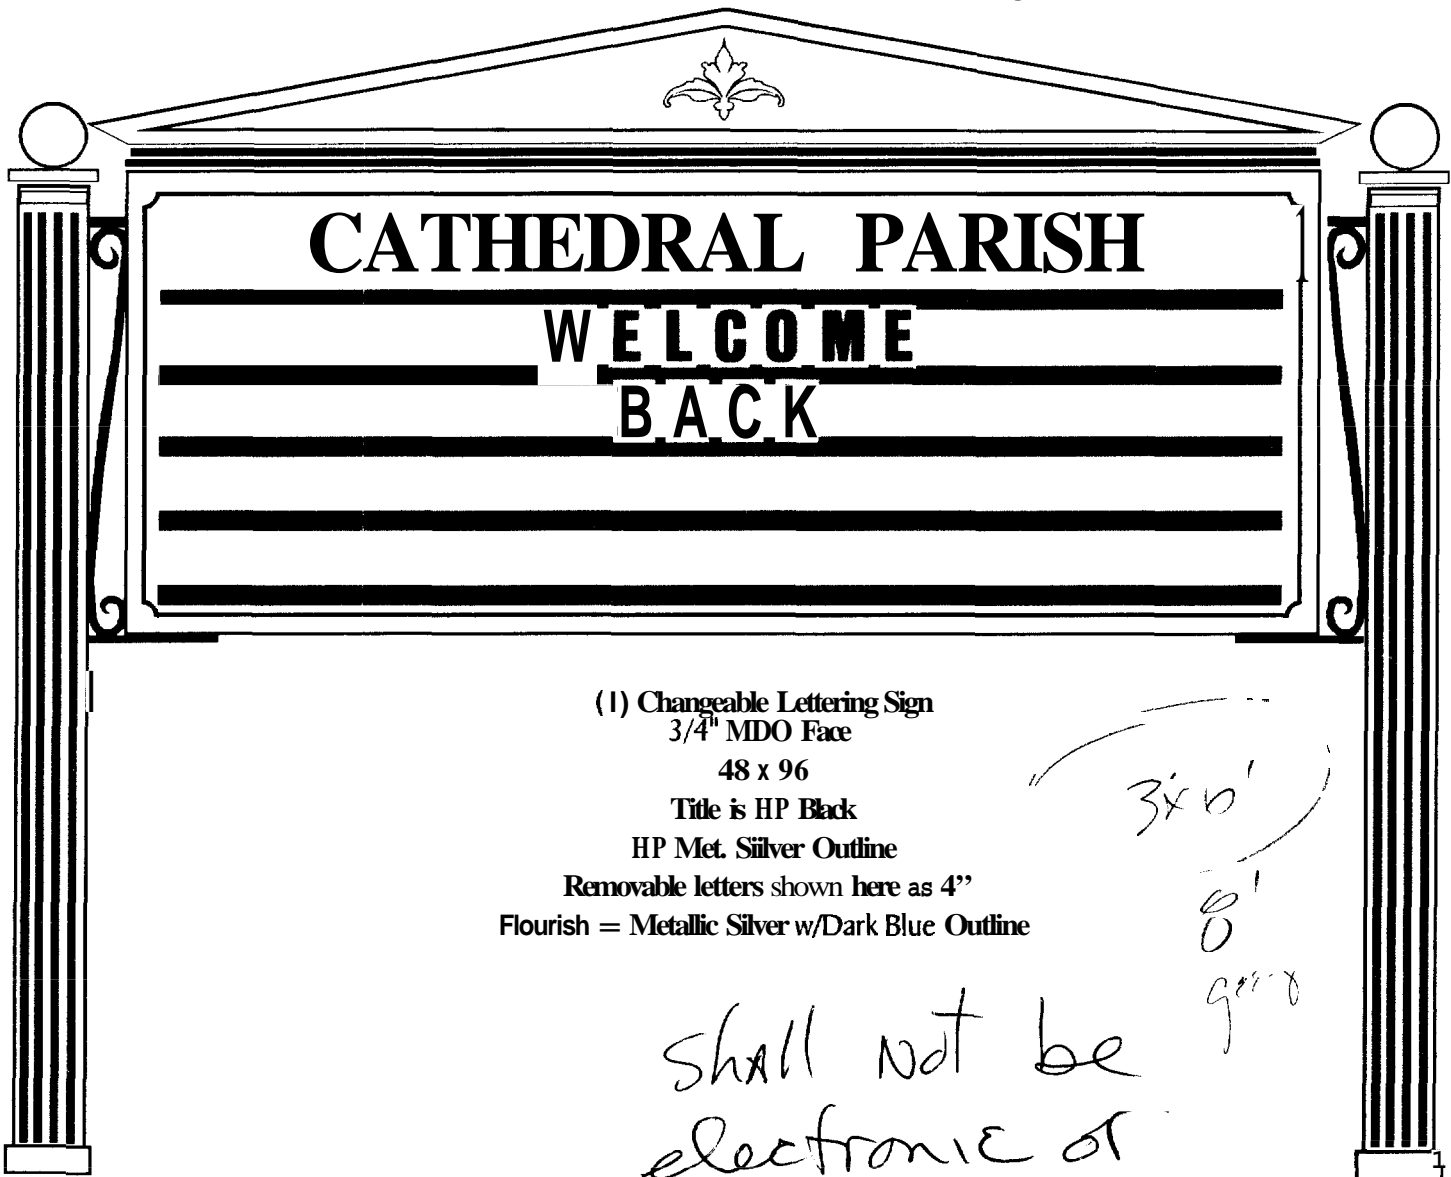 CATHEDRAL PARISH
WELCOME
BACK
(1) Changeable Lettering Sign
3/4" MDO Face
48 x 96
Title is HP Black
HP Met. Siilver Outline
Removable letters shown here as 4”
Flourish = Metallic Silver w/Dark Blue Outline
8'
shall not be
electronic or
1